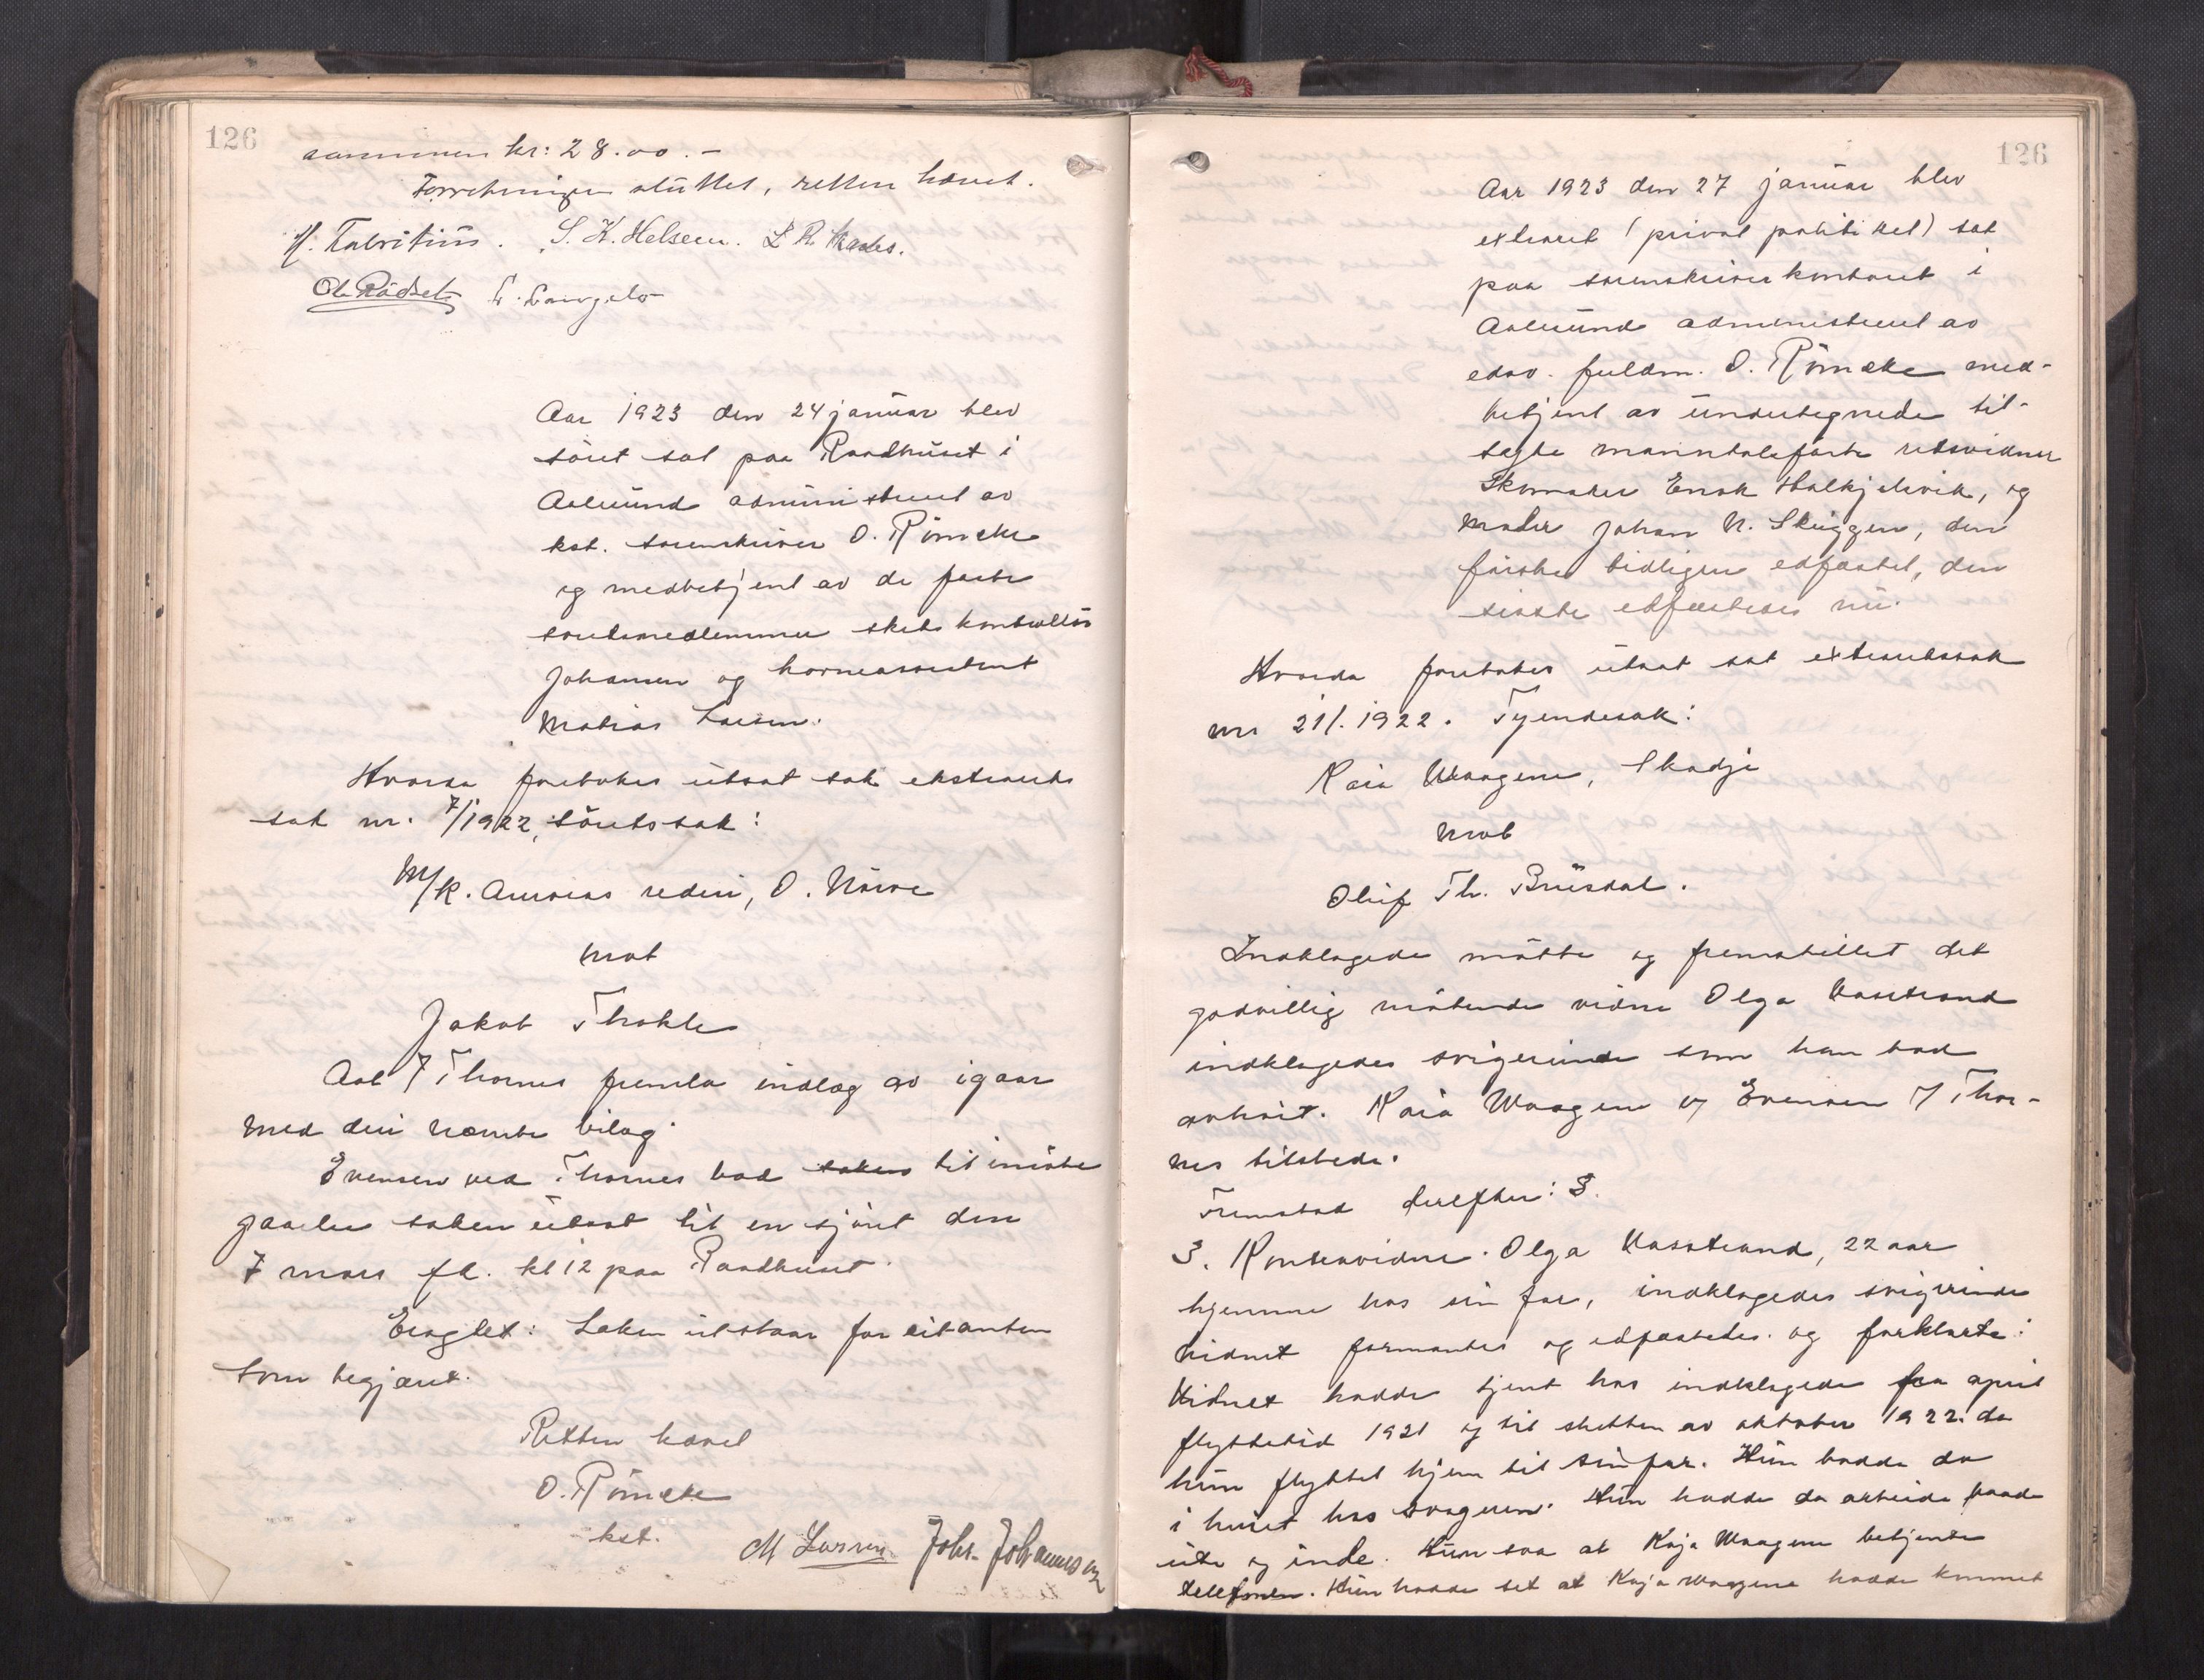 126
sammen kr: 28.00.-
Forretningen sluttet, retten hævet.
H. Fabritius. S. K. Helseen.
Ole Rödset
Aar 1923 den 24 januar blev
söret sat paa Raadhuset i
Aalesund administrert av
kst. sorenskriver O. Römcke
og medbetjent av de faste
soretsmedlemmer skibskontrollör
Johansen og havneassistent
Matias Larsen.
Hvorda foretokes utsat sak ekstrarets
sak nr. 7/1922, söretssak:
M/K. Auroras rederi, O. Nörve
mot
Jakob Thokle
Aal 7 Thornes fremla indlæg av igaar
med deri nævnte bilag.
Evensen ved Thornes bad saken til imöte
gaaelse saken utsat til en sjöret den
7 mars fk. kl 12 paa Raadhuset.
Eragtet: Saken utstaar for citanten
som begjæret.
Retten hævet
O. Römcke
kst.
M Larsen Johs. Johannsen
126
Aar 1923 den 27 januar blev
extraret (privat politiket) sat
paa sorenskriverkontoret i
Aalesund administrert av
edsv. fuldm. O. Römcke med-
betjent av undertegnede til-
sagte manntalsförte retsvidner
Skomaker Enok Halkjelsvik, og
maler Johan N. Skuggen, den
förste tidligere edfæstet, den
sisste edfæstedes nu.
Hvorda foretokes utsat sat extraretssak
nr 21/. 1922. Tyendesak:
Kaia Waagene, Skodje
mot
Oluf Th. Brusdal.
Indklagede mötte og fremstillet det
godvillig mötende vidne Olga Vasstrand
indklagedes svigerinde som han bad
avhört. Kaia Waagene og Evensen 7 Thor-
nes tilstede.
Fremstod derefter: 3.
3. Kontravidne. Olga Vasstrand, 22 aar
hjemme hos sin far, indklagedes svigerinde
Vidnet formantes og edfæstedes. og forklarte:
Vidnet hadde tjent hos indklagede fra april
flyttetid 1921 og til slutten av oktober 1922. da
hun flyttet hjem til sin far. Hun bodde da
i huset hos svogeren. Hun hadde da arbeide baade
ute og inde. Hun saa at Kaja Waagene betjente
telefonen. Hun hadde set at Kaja Waagene hadde kommet